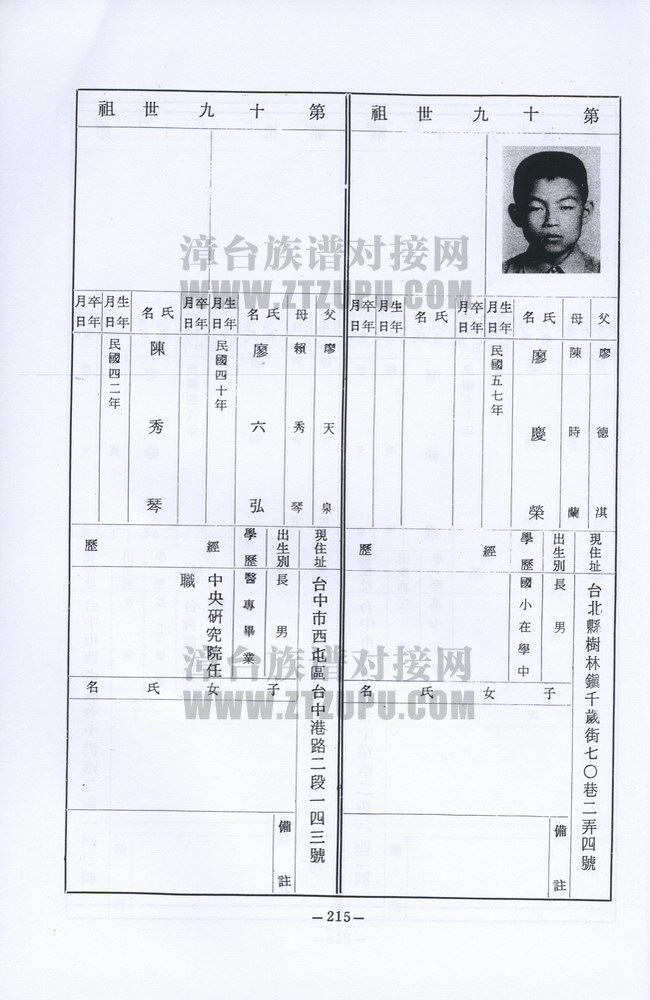 第十九世祖
父 廖德淇
母 陳時蘭
氏名 廖慶榮
生年月日 民國五七年
卒年月日
氏名
生年月日
卒年月日
現住址 台北縣樹林鎮千歲街七〇巷二弄四號
出生別 長男
學歷 國小在學中
經歷
子女氏名
備註
第十九世祖
父 廖天泉
母 賴秀琴
氏名 廖六弘
生年月日 民國四十年
卒年月日
氏名 陳秀琴
生年月日 民國四二年
卒年月日
現住址 台中市西屯區台中港路二段一四三號
出生別 長男
學歷 醫專畢業
經歷 中央研究院任職
子女氏名
備註
—215—
漳台族谱对接网
WWW.ZTZUPU.COM
漳台族谱对接网
WWW.ZTZUPU.COM